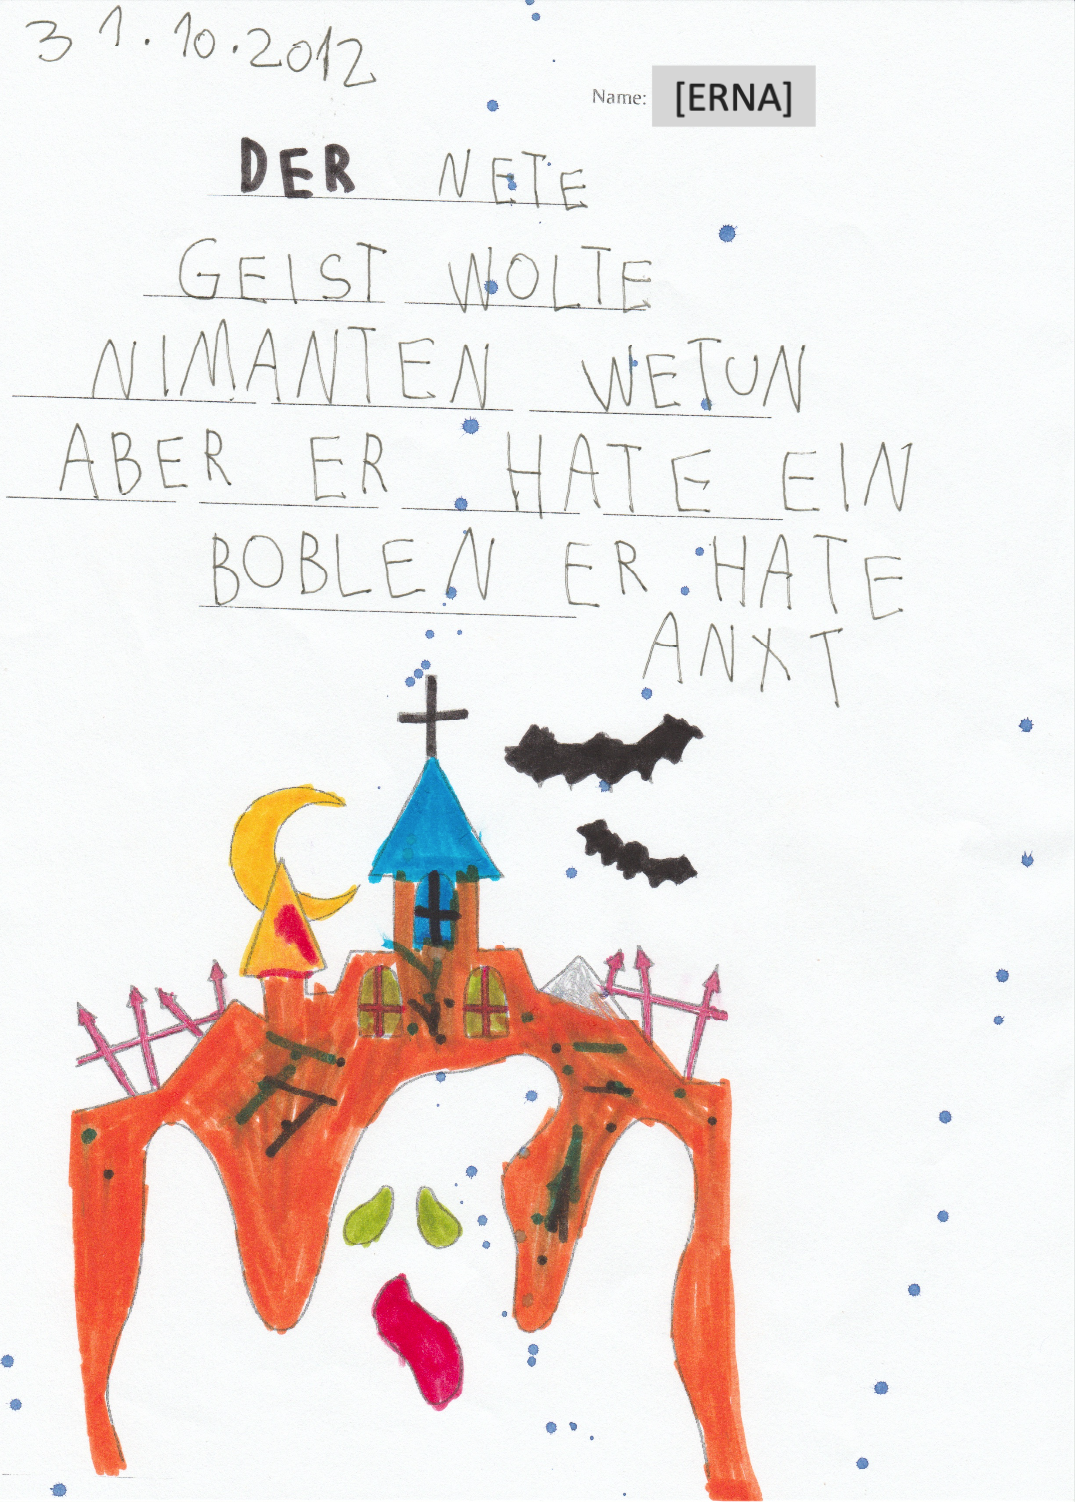 31.10.2012
Name: [ERNA]
DER NETE
GEIST WOLTE
NIMANTEN WETUN
ABER ER HATE EIN
BOBLEN ER HATE
ANXT